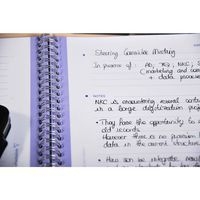 Steering Committee Meeting
In presence of : AO, JKG, NKC, S
(marketing and com
+ data process
NOTES
NKC is encountering several contr
in a large digitization project
• They have the opportunity to
old records.
However there is no provision
data in the current structure
• How can we integrate